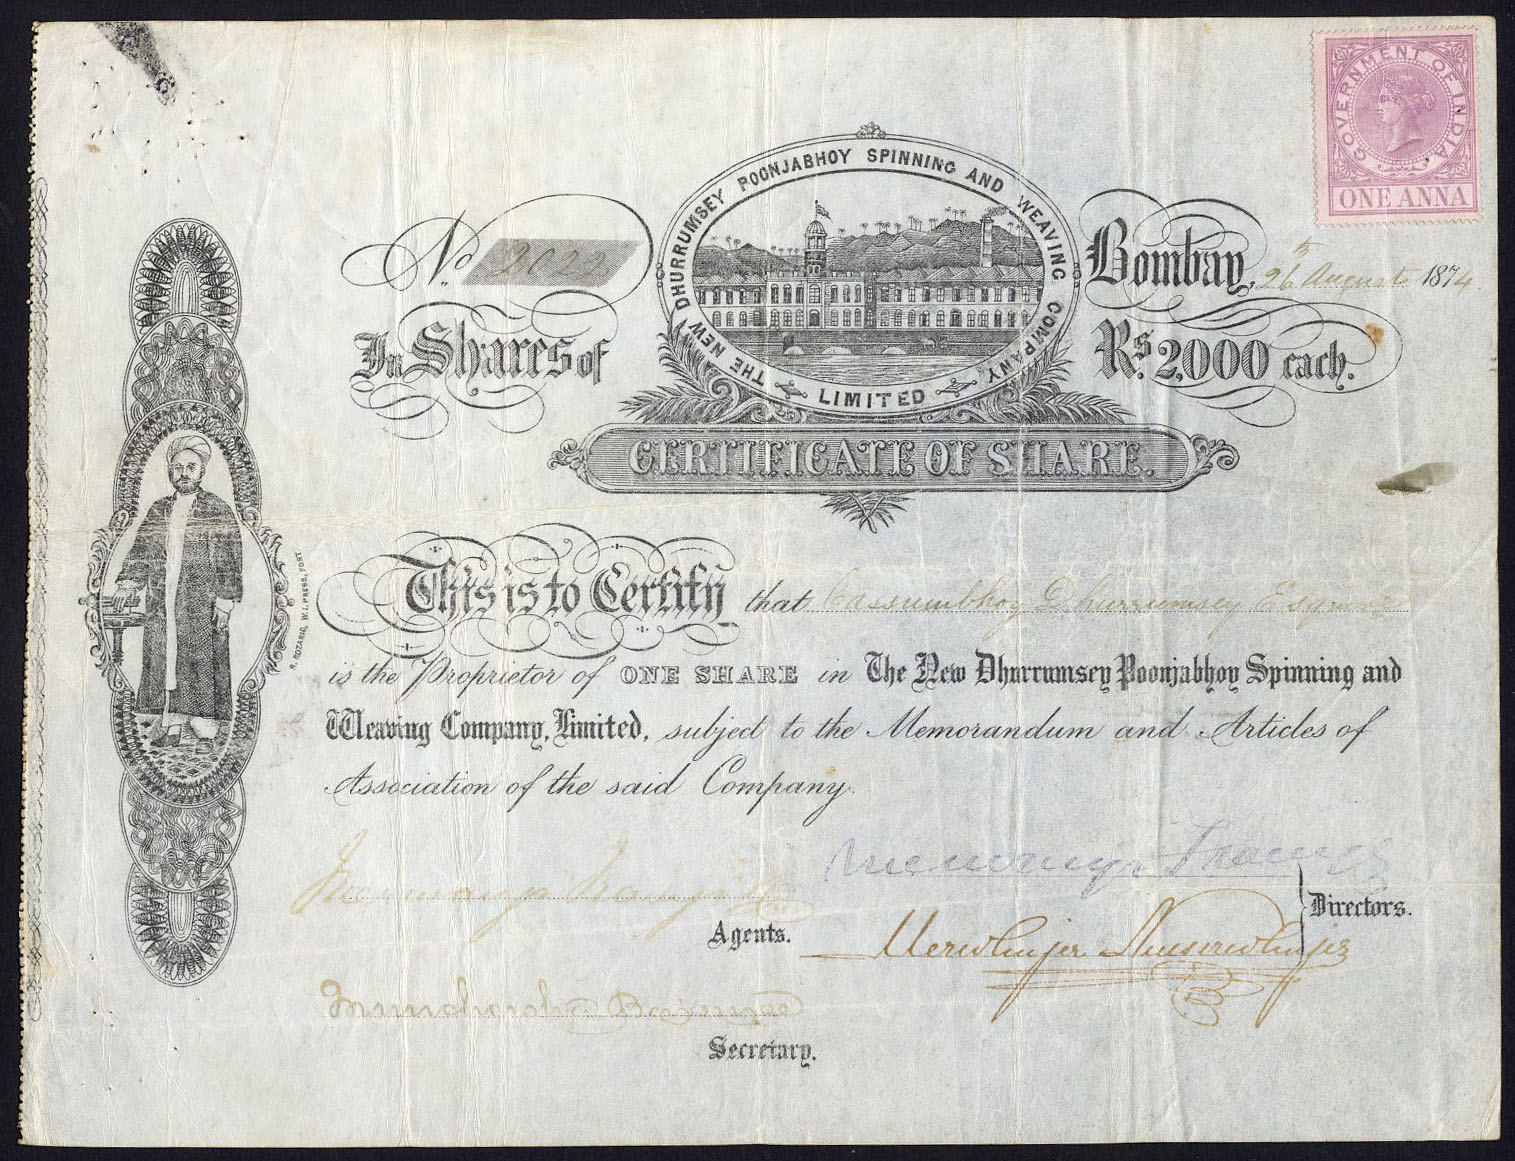 GOVERNMENT OF INDIA
ONE ANNA
THE NEW DHURRUMSEY POONJABHOY SPINNING AND WEAVING COMPANY
LIMITED
No. 2022
Bombay, 26th August 1874.
In Shares of
Rs. 2,000 each.
CERTIFICATE OF SHARE.
This is to Certify that Cassumbhoy Dhurrumsey Esquire
is the Proprietor of ONE SHARE in The New Dhurrumsey Poonjabhoy Spinning and
Weaving Company, Limited, subject to the Memorandum and Articles of
Association of the said Company.
R. ROZARIO, W.I. PRESS, FORT.
Directors.
Agents.
Secretary.